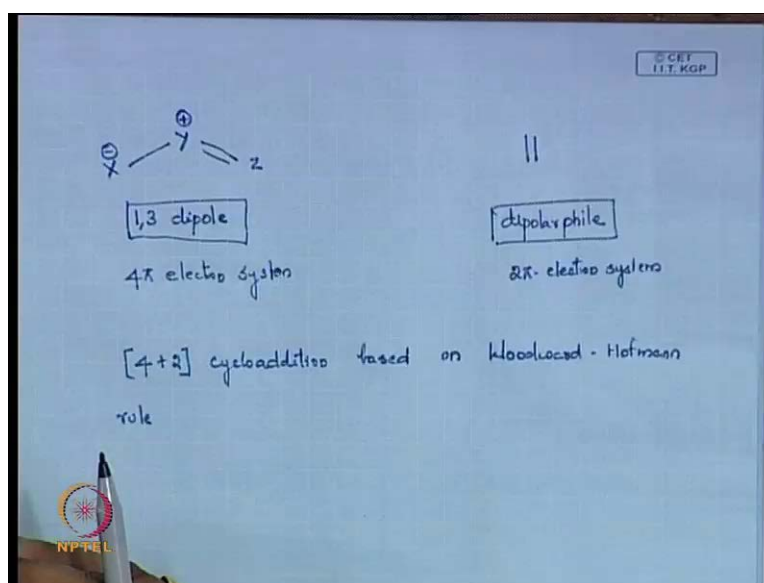 © CET
I.I.T. KGP
⊕
⊖ Y
X Z
1,3 dipole
dipolarphile
4π electro system
2π- electro system
[4+2] cycloaddition based on Woodward - Hofmann
rule
NPTEL